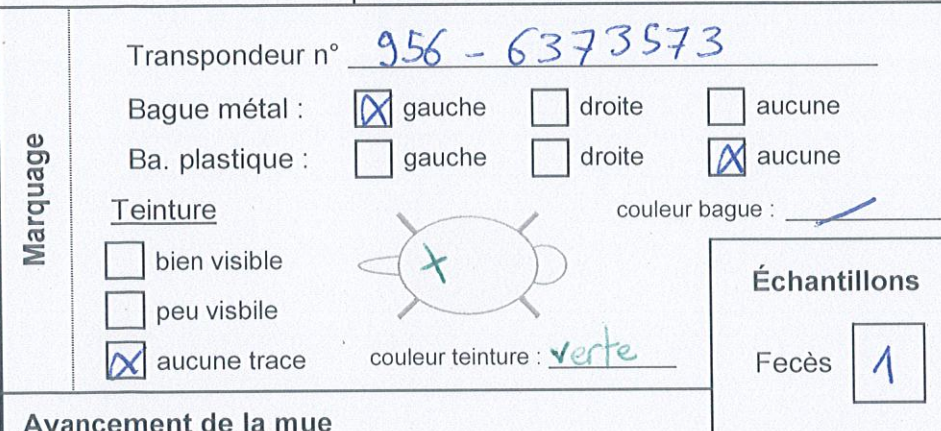 Marquage
Transpondeur n° 956 - 6373573
Bague métal : ☒ gauche ☐ droite ☐ aucune
Ba. plastique : ☐ gauche ☐ droite ☒ aucune
Teinture
couleur bague : /
☐ bien visible
☐ peu visbile
☒ aucune trace
couleur teinture : verte
Échantillons
Fecès 1
Avancement de la mue